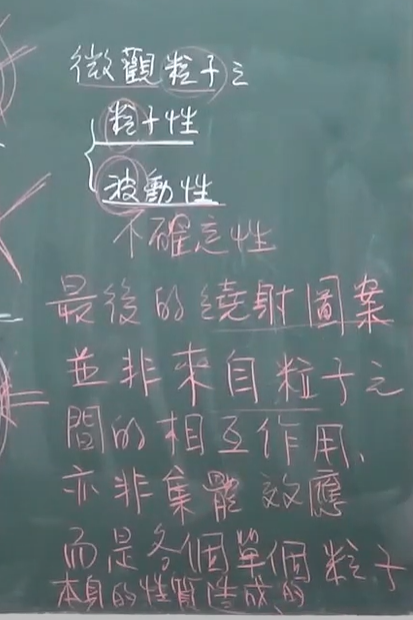 微觀粒子之
粒子性
波動性
不確定性
最後的繞射圖案
並非來自粒子之
間的相互作用、
亦非集體效應
而是各個單個粒子
本身的性質造成的